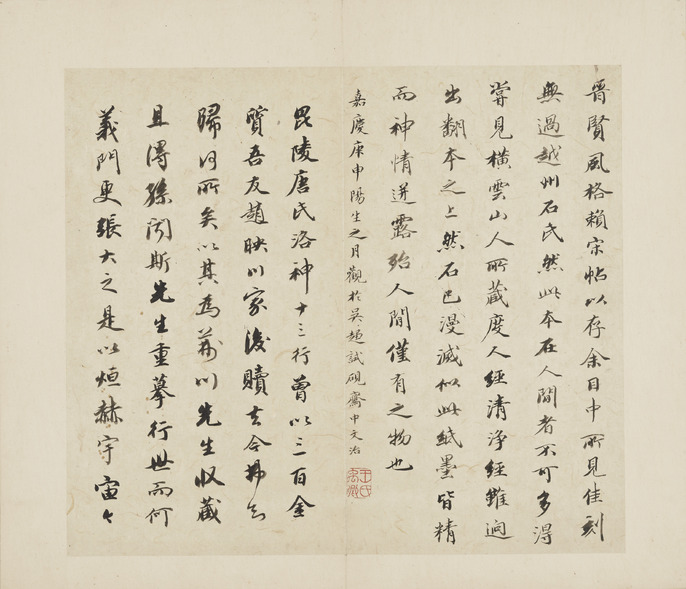 晉賢風格賴宋帖以存余目中所見佳刻
無過越州石氏然此本在人間者不可多得
嘗見橫雲山人所藏度人經清淨經雖迥
出翻本之上然石已漫滅似此紙墨皆精
而神情迸露殆人間僅有之物也
嘉慶庚申陽生之月觀於吳趨試硯齋中文治
毘陵唐氏洛神十三行曾以三百金
質吾友趙映川家後贖去今歸
歸所矣以其為荊川先生收藏
且得孫聞斯先生重摹行世而何
義門更張大之是以烜赫宇宙